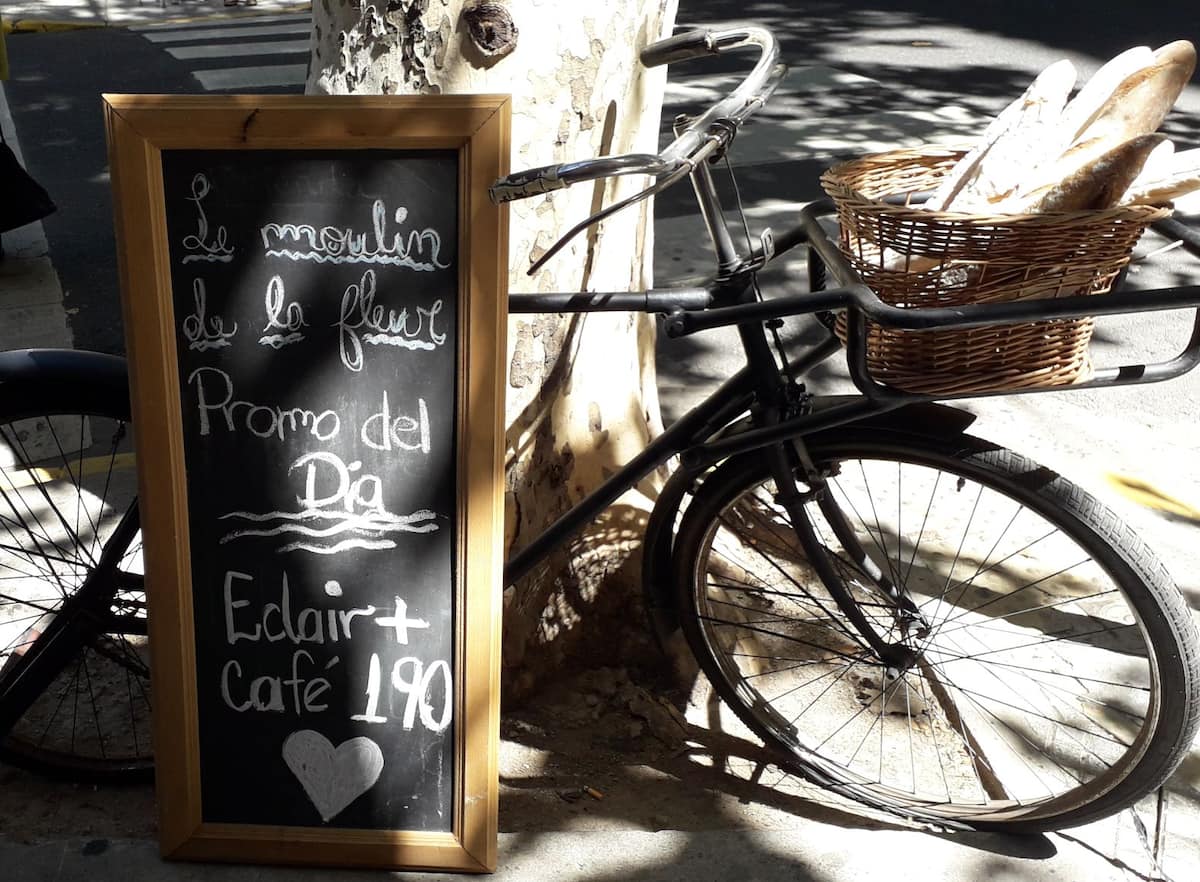 Le moulin
de la fleur
Promo del
Día
Eclair +
Café 190